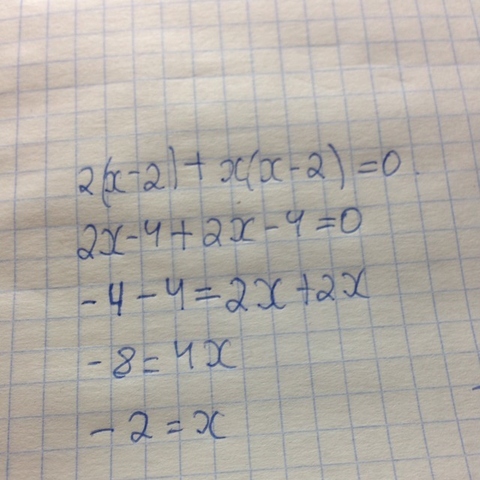 2(x-2)+x(x-2)=0.
2x-4+2x-4=0
-4-4=2x+2x
-8=4x
-2=x